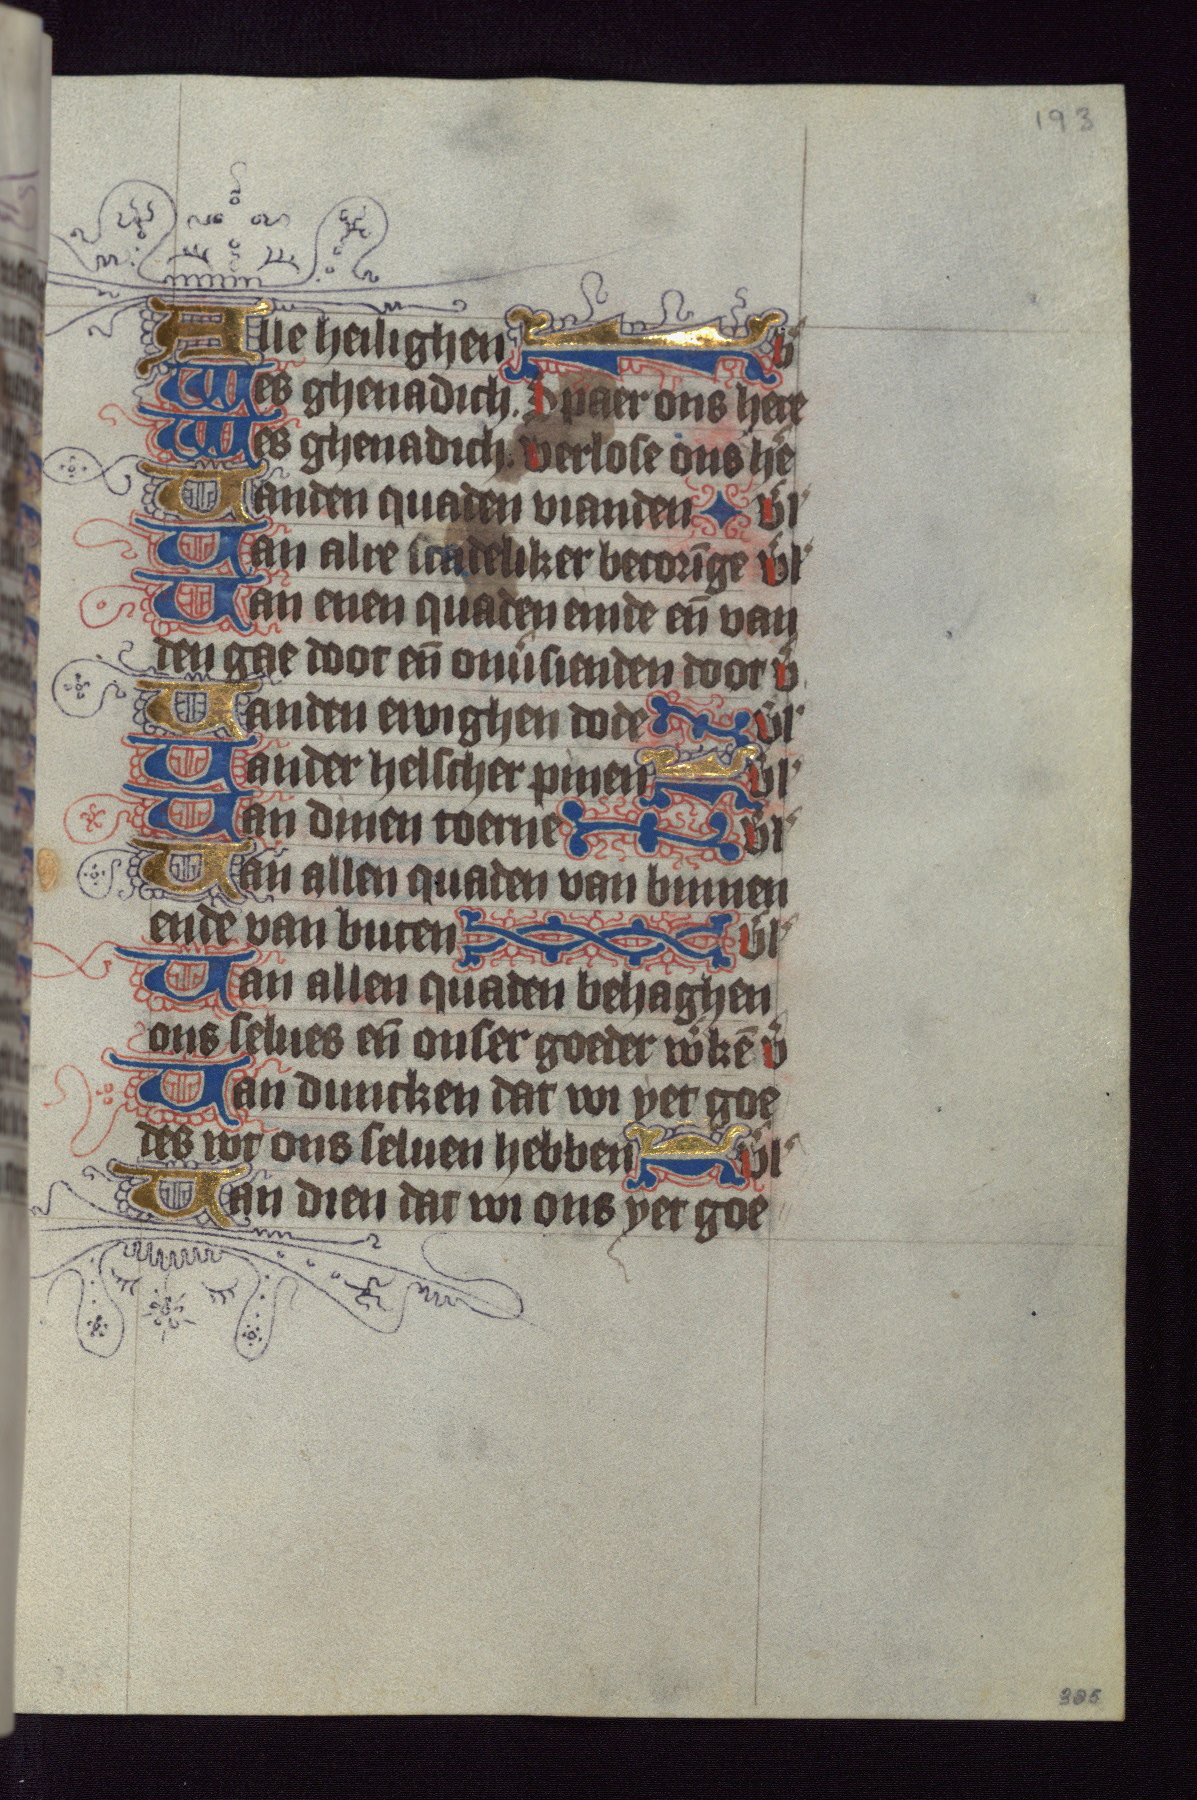 193
Alle heilighen b̄
Wes ghenadich. Spaer ons here
Wes ghenadich. verlose ons hē
Vanden quaden vianden v̄l'
Van alre scadeliker becorīge v̄l'
Van enen quaden einde eñ van
den gae doot eñ onv̄sienden doot v̄
Vanden ewighen dode v̄l'
Vander helscher pinen v̄l'
Van dinen toerne v̄l'
Van allen quaden van binnen
ende van buten v̄l'
Van allen quaden behaghen
ons selues eñ onser goeder w̄kē v̄
Van duncken dat wi yet goe
des wt ons seluen hebben v̄l'
Van dien dat wi ons yet goe
385